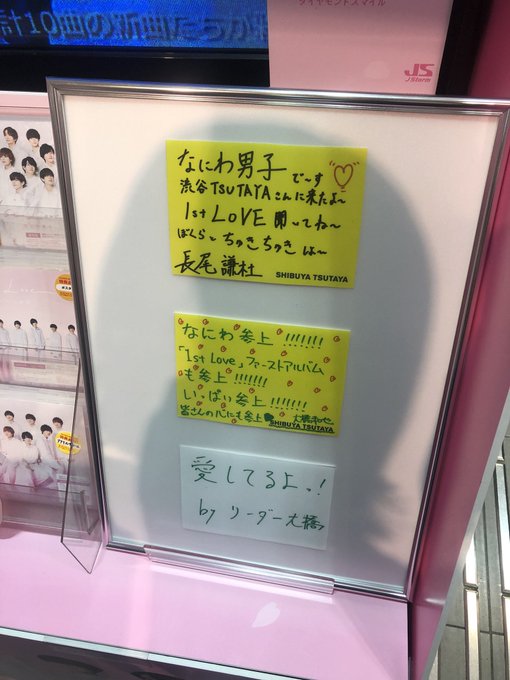 計10曲の新曲たちが
ダイヤモンドスマイル
JS
J Storm
なにわ男子で〜す
渋谷TSUTAYAさんに来たよ〜
1st LOVE 聞いてね〜
ぼくらとちゅきちゅきは〜
長尾謙杜
SHIBUYA TSUTAYA
なにわ参上!!!!!!!
「1st Love」ファーストアルバム
も参上!!!!!!!
いっぱい参上!!!!!!!
皆さんの心にも参上
大橋和也
SHIBUYA TSUTAYA
愛してるよっ!
by リーダー大橋